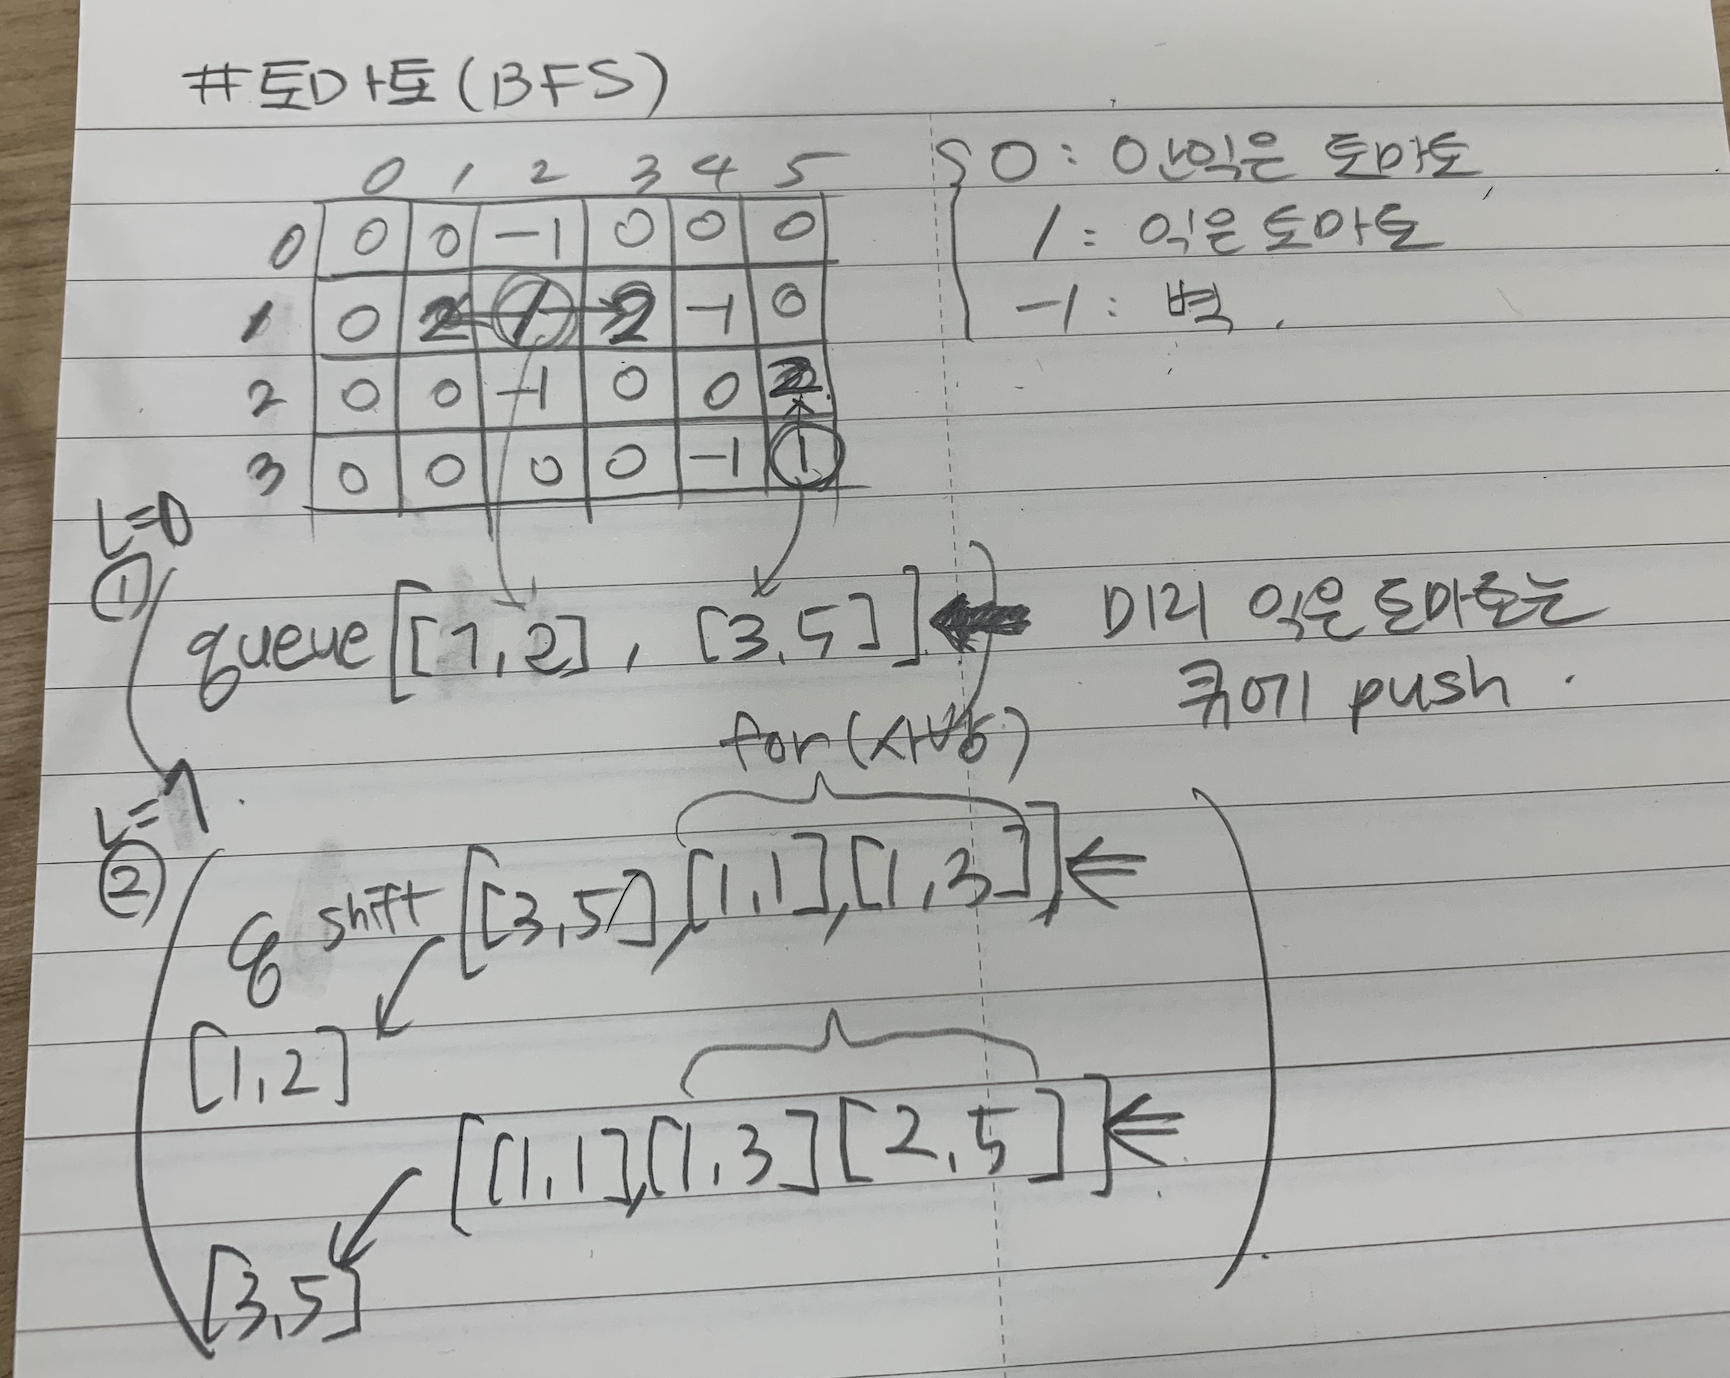 #토마토(BFS)
0 1 2 3 4 5
0 0 0 -1 0 0 0
1 0 2 1 2 -1 0
2 0 0 -1 0 0 2
3 0 0 0 0 -1 1
0: 안익은 토마토
1: 익은 토마토
-1: 벽.
L=0
① queue[[1,2], [3,5]] 미리 익은 토마토는
큐에 push.
for(사방)
L=1
② q shift [[3,5],[1,1],[1,3]]
[1,2]
[[1,1],[1,3][2,5]]
[3,5]